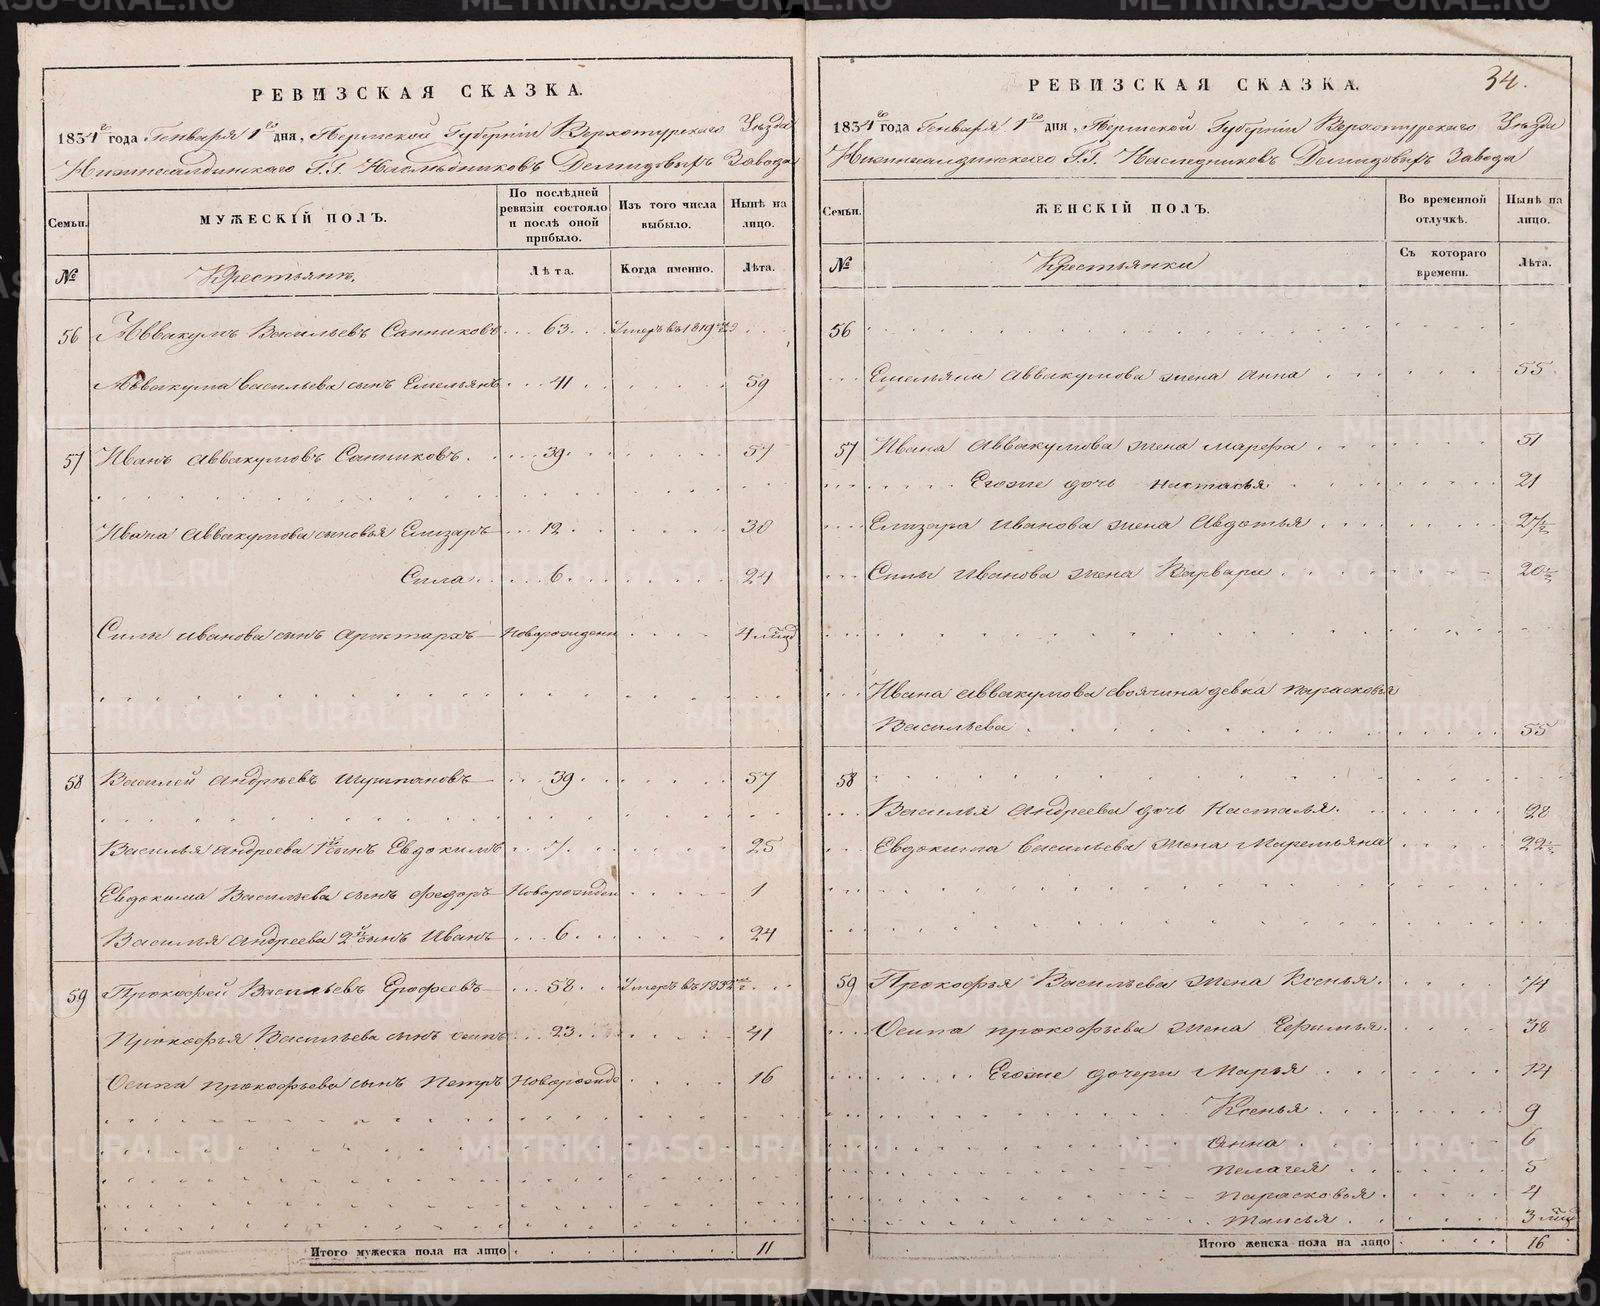 РЕВИЗСКАЯ СКАЗКА.
1834го года Генваря 1го дня, Пермской Губерніи Верхотурскаго Уѣзда
Нижнесалдинскаго Г.Г. Наслѣдниковъ Демидовыхъ Завода
Семьи.
МУЖЕСКІЙ ПОЛЪ.
По послѣдней ревизіи состояло и послѣ оной прибыло.
Изъ того числа выбыло.
Нынѣ на лицо.
№
Крестьянъ.
Лѣта.
Когда именно.
Лѣта.
56 Аввакумъ Васильевъ Санниковъ 63 Умеръ въ 1819
Аввакума Васильева сынъ Емельянъ 41 59
57 Иванъ Аввакумовъ Санниковъ 39 57
Ивана Аввакумова сыновья Елизаръ 12 30
Сила 6 24
Силы Иванова сынъ Аристархъ Новорожденн 4
58 Василей Андреевъ 39 57
Василья Андреева 1й сынъ Евдокимъ 7 25
Евдокима Васильева сынъ Федоръ Новорожден 1
Василья Андреева 2й сынъ Иванъ 6 24
59 Прокофей Васильевъ Ерофеевъ 58 Умеръ въ 1832
Прокофья Васильева сынъ Осипъ 23 41
Осипа Прокофьева сынъ Петръ Новорожде 16
Итого мужеска пола на лицо 11
34.
РЕВИЗСКАЯ СКАЗКА.
1834го года Генваря 1го дня, Пермской Губерніи Верхотурскаго Уѣзда
Нижнесалдинскаго Г.Г. Наследниковъ Демидовыхъ Завода
Семьи.
ЖЕНСКІЙ ПОЛЪ.
Во временной отлучкѣ.
Нынѣ на лицо.
№
Крестьянки
Съ котораго времени.
Лѣта.
56
Емельяна Аввакумова жена Анна 55
57 Ивана Аввакумова жена Марефа 51
Егоже дочь Настасья 21
Елизара Иванова жена Авдотья 27½
Силы Иванова жена Варвара 20½
Ивана Аввакумова своячина девка Парасковья
Васильева 55
58
Василья Андреева дочь Наталья 28
Евдокима Васильева жена Маремьяна 22½
59 Прокофья Васильева жена Ксенья 74
Осипа Прокофьева жена Ефимья 38
Егоже дочери Марья 14
Ксенья 9
Анна 6
Пелагея 5
Парасковья 4
Таисья 3
Итого женска пола на лицо 16
METRIKI.GASO-URAL.RU